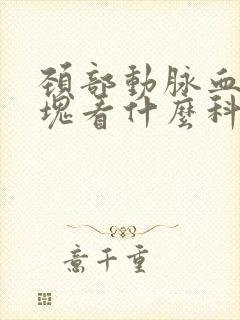 頸部動脉血
塊看什麽科
意千重